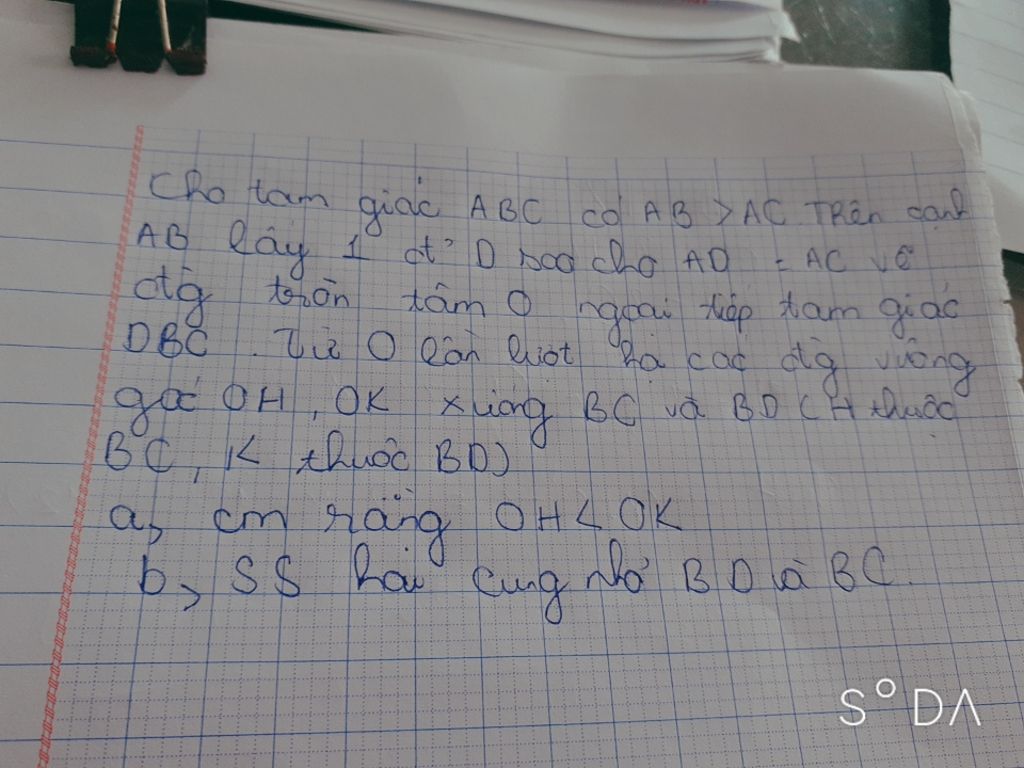 Cho tam giác ABC có AB > AC Trên cạnh
AB lấy 1 đ' D sao cho AD = AC vẽ
đtg tròn tâm O ngoại tiếp tam giác
DBC. Từ O lần lượt hạ các đtg vuông
góc OH, OK xuống BC và BD (H thuộc
BC, K thuộc BD)
a, cm rằng OH < OK
b, SS hai cung nhỏ BD và BC.
S°DA